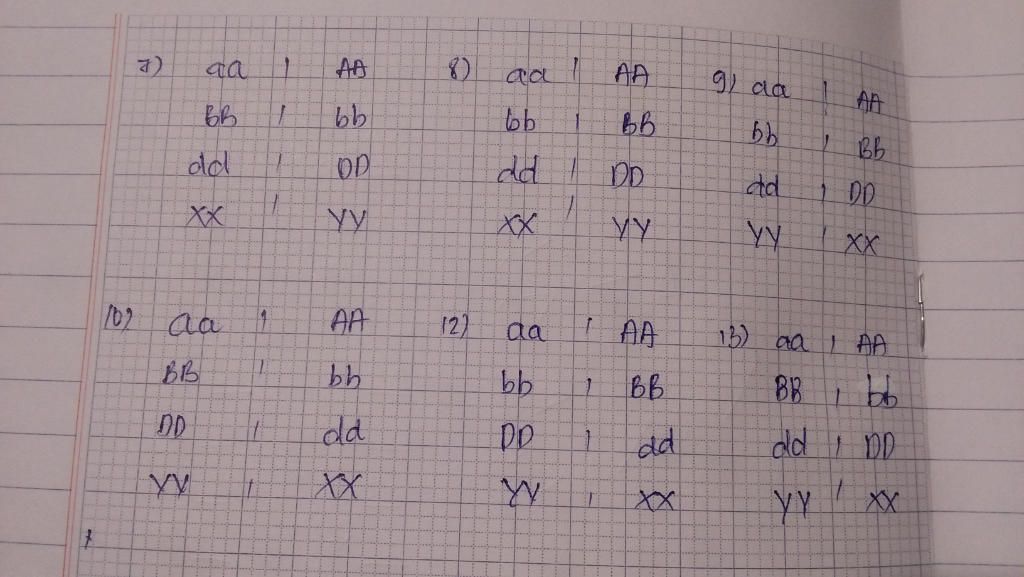 7) aa | AA 8) aa | AA 9) aa | AA
BB | bb bb | BB bb | Bb
dd | DD dd | DD dd | DD
XX | YY XX | YY YY | XX
10) aa | AA 12) aa | AA 13) aa | AA
BB | bb bb | BB BB | bb
DD | dd DD | dd dd | DD
YY | XX YY | XX YY | XX